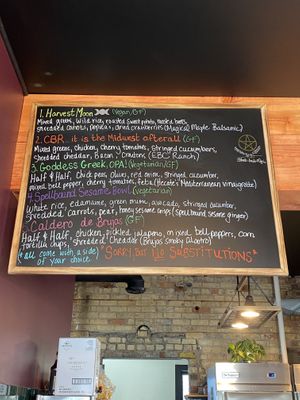 1. Harvest Moon (Vegan/GF)
Mixed greens, wild rice, roasted sweet potato, roasted beets,
shredded carrots, pepitas, dried cranberries (Magical Maple Balsamic)
2. CBR.. it is the Midwest afterall (GF)
Mixed greens, chicken, cherry tomatoes, stringed cucumbers,
shredded cheddar, Bacon, Onions (EBC Ranch)
3. Goddess Greek, OPA! (Vegetarian/GF)
Half & Half, chick peas, olives, red onion, stringed cucumber,
mixed bell pepper, cherry tomatoes, feta (Hecate's Mediterranean Vinaigrette)
4. Spellbound Sesame Bowl (Vegetarian)
White rice, edamame, green onion, avocado, stringed cucumber,
shredded carrots, pear, honey sesame crisps (Spellbound sesame ginger)
5. Caldero de Brujas (GF)
Half & Half, chicken, pickled jalapeno, onion, mixed bell peppers, corn,
tortilla chips, shredded cheddar (Brujas Smoky Cilantro)
*all come with a side
of your choice*
*SORRY, BUT NO SUBSTITUTIONS*